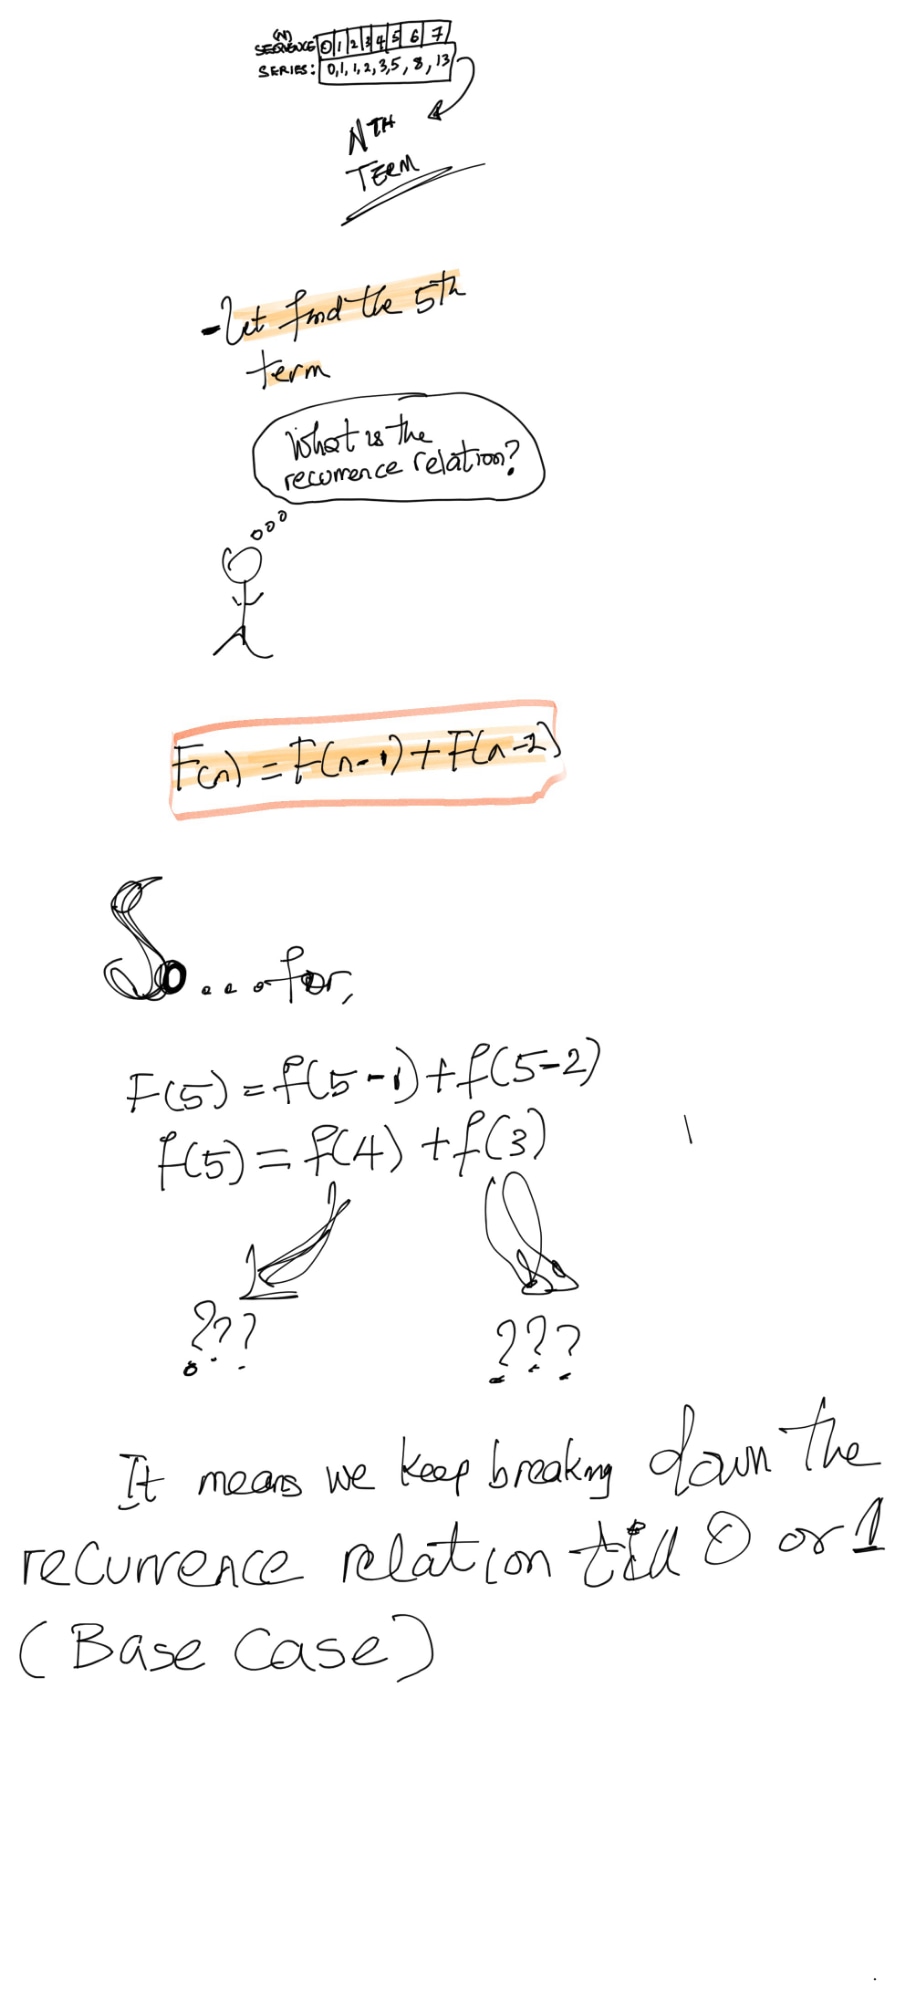 (N)
SEQUENCE 0 1 2 3 4 5 6 7
SERIES: 0, 1, 1, 2, 3, 5, 8, 13
NTH
TERM
- Let find the 5th
term
What is the
recurrence relation?
F(n) = F(n-1) + F(n-2)
So... for,
F(5) = f(5-1) + f(5-2)
f(5) = f(4) + f(3)
??? ???
It means we keep breaking down the
recurrence relation till 0 or 1
(Base Case)